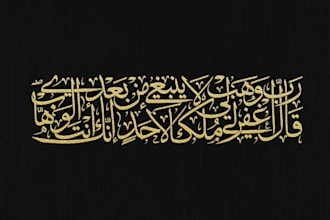 قَالَ رَبِّ اغْفِرْ لِي وَهَبْ لِي مُلْكًا لَا يَنْبَغِي لِأَحَدٍ مِنْ بَعْدِي إِنَّكَ أَنْتَ الْوَهَّابُ